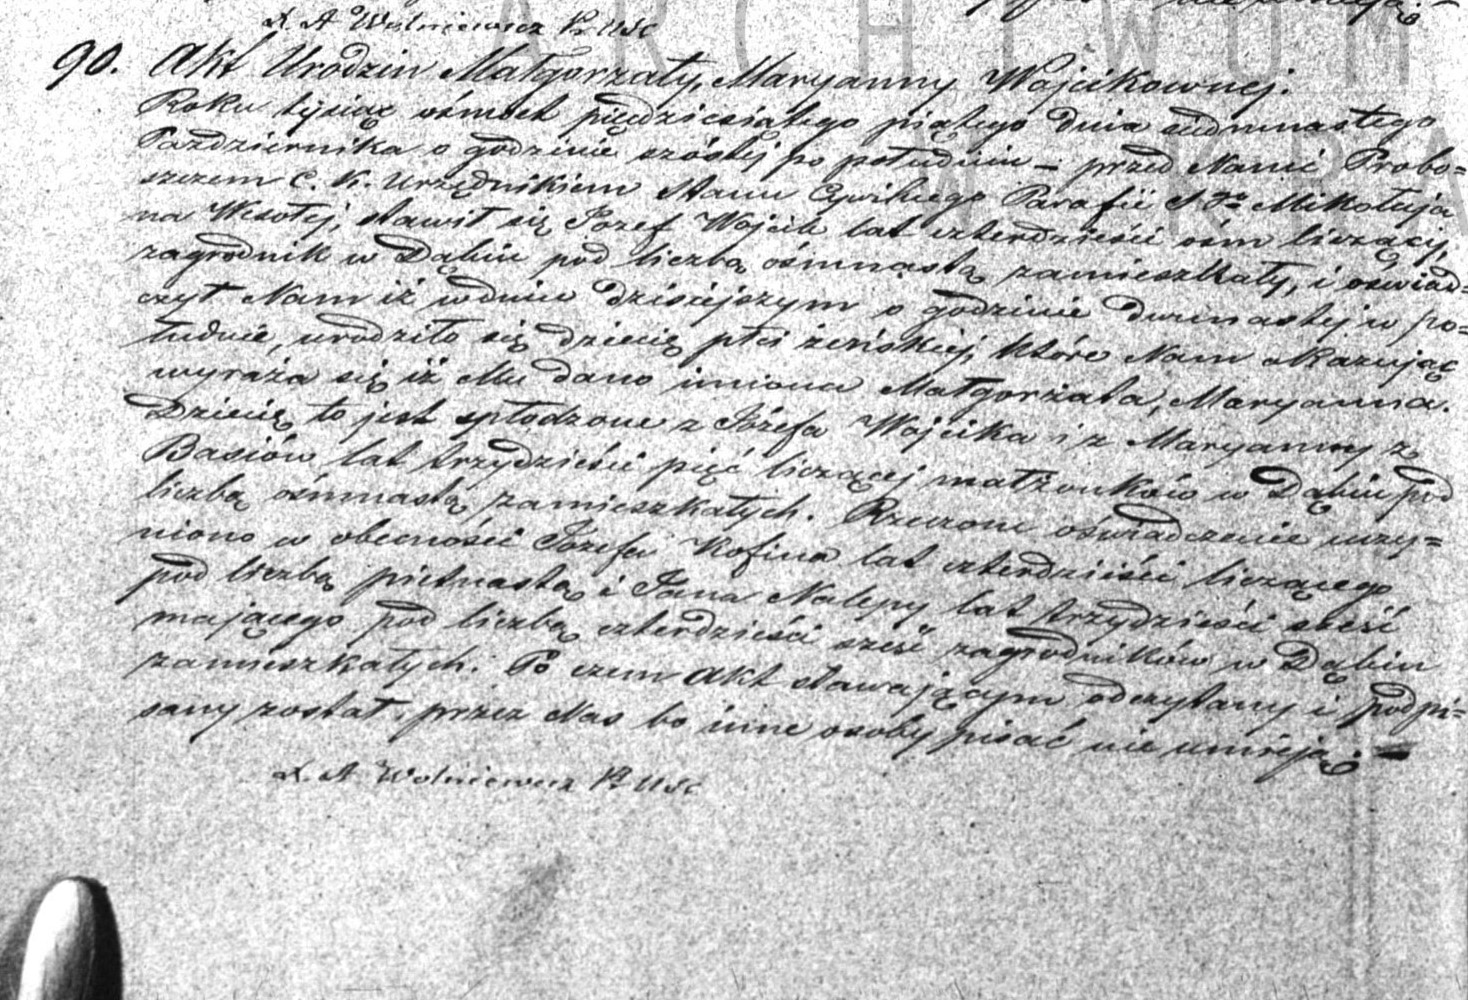 X. A Wolniewicz Pr. USC
90. Akt Urodzin Małgorzaty, Maryanny Wojcikownej.
Roku tysiąc ośmset piędziesiątego piątego dnia siedmnastego
Pazdziernika o godzinie szóstej po południu – przed Nami Probo=
szczem C. K. Urzędnikiem Stanu Cywilnego Parafii S Go Mikołaja
na Wesołej, stawił się Jozef Wojcik lat czterdzieści ośm liczący,
zagrodnik w Dąbiu pod liczbą ośmnastą zamieszkały, i oświad=
czył Nam iż w dniu dzisiejszym o godzinie dwunastej w po=
łudnie, urodziło się dziecię płci żeńskiej, które Nam okazując
wyraża się iż Mu dano imiona Małgorzata, Maryanna.
Dziecię to jest spłodzone z Józefa Wojcika i z Maryanny z
Basiów lat trzydzieści pięć liczącej małżonków w Dąbiu pod
liczbą ośmnastą zamieszkałych. Rzeczone oświadczenie uczy=
niono w obecności Józefa Kofina lat czterdzieści liczącego
pod liczbą pietnastą i Jana Nalepy lat trzydzieści sześć
mającego pod liczbą czterdzieści sześć zagrodników w Dąbiu
zamieszkałych. Po czem Akt stawającym odczytany i podpi=
sany został, przez Nas bo inne osoby pisać nie umieją. –
X. A Wolniewicz Pr. USC
ARCHIWUM
W KRA